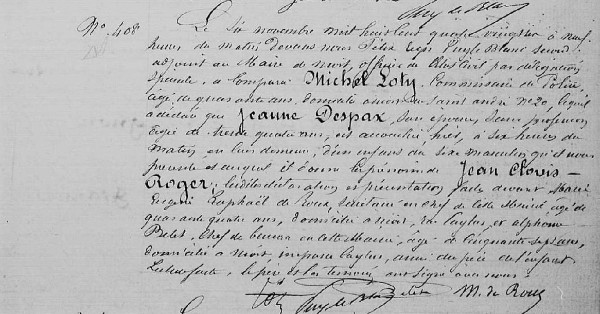 No. 408
Le six novembre mil huit cent quatre vingt six à neuf
heures du matin devant nous Félix Puy le Blanc second
adjoint au Maire de Niort, officier de l'Etat Civil par délégation
spéciale, a comparu Michel Loty, Commissaire de Police
âgé de quarante ans, domicilié à Niort rue Saint André no 20, lequel
a déclaré que Jeanne Despax, son épouse, sans profession
âgée de trente quatre ans, est accouchée, hier, à six heures du
matin en leur demeure, d'un enfant du sexe masculin qu'il nous
présente et auquel il donne les prénoms de Jean Clovis-
Roger; lesdites déclaration et présentation faites devant Marie
Eugène Raphaël de Roux, secrétaire en chef de cette Mairie âgé de
quarante quatre ans, domicilié à Niort, et Alphonse
chef de bureau en cette Mairie, âgé de cinquante sept ans,
domicilié à Niort, impasse amis du père de l'enfant.
Lecture faite, le père et les témoins ont signé avec nous.
Loty Puy le Blanc M. de Roux